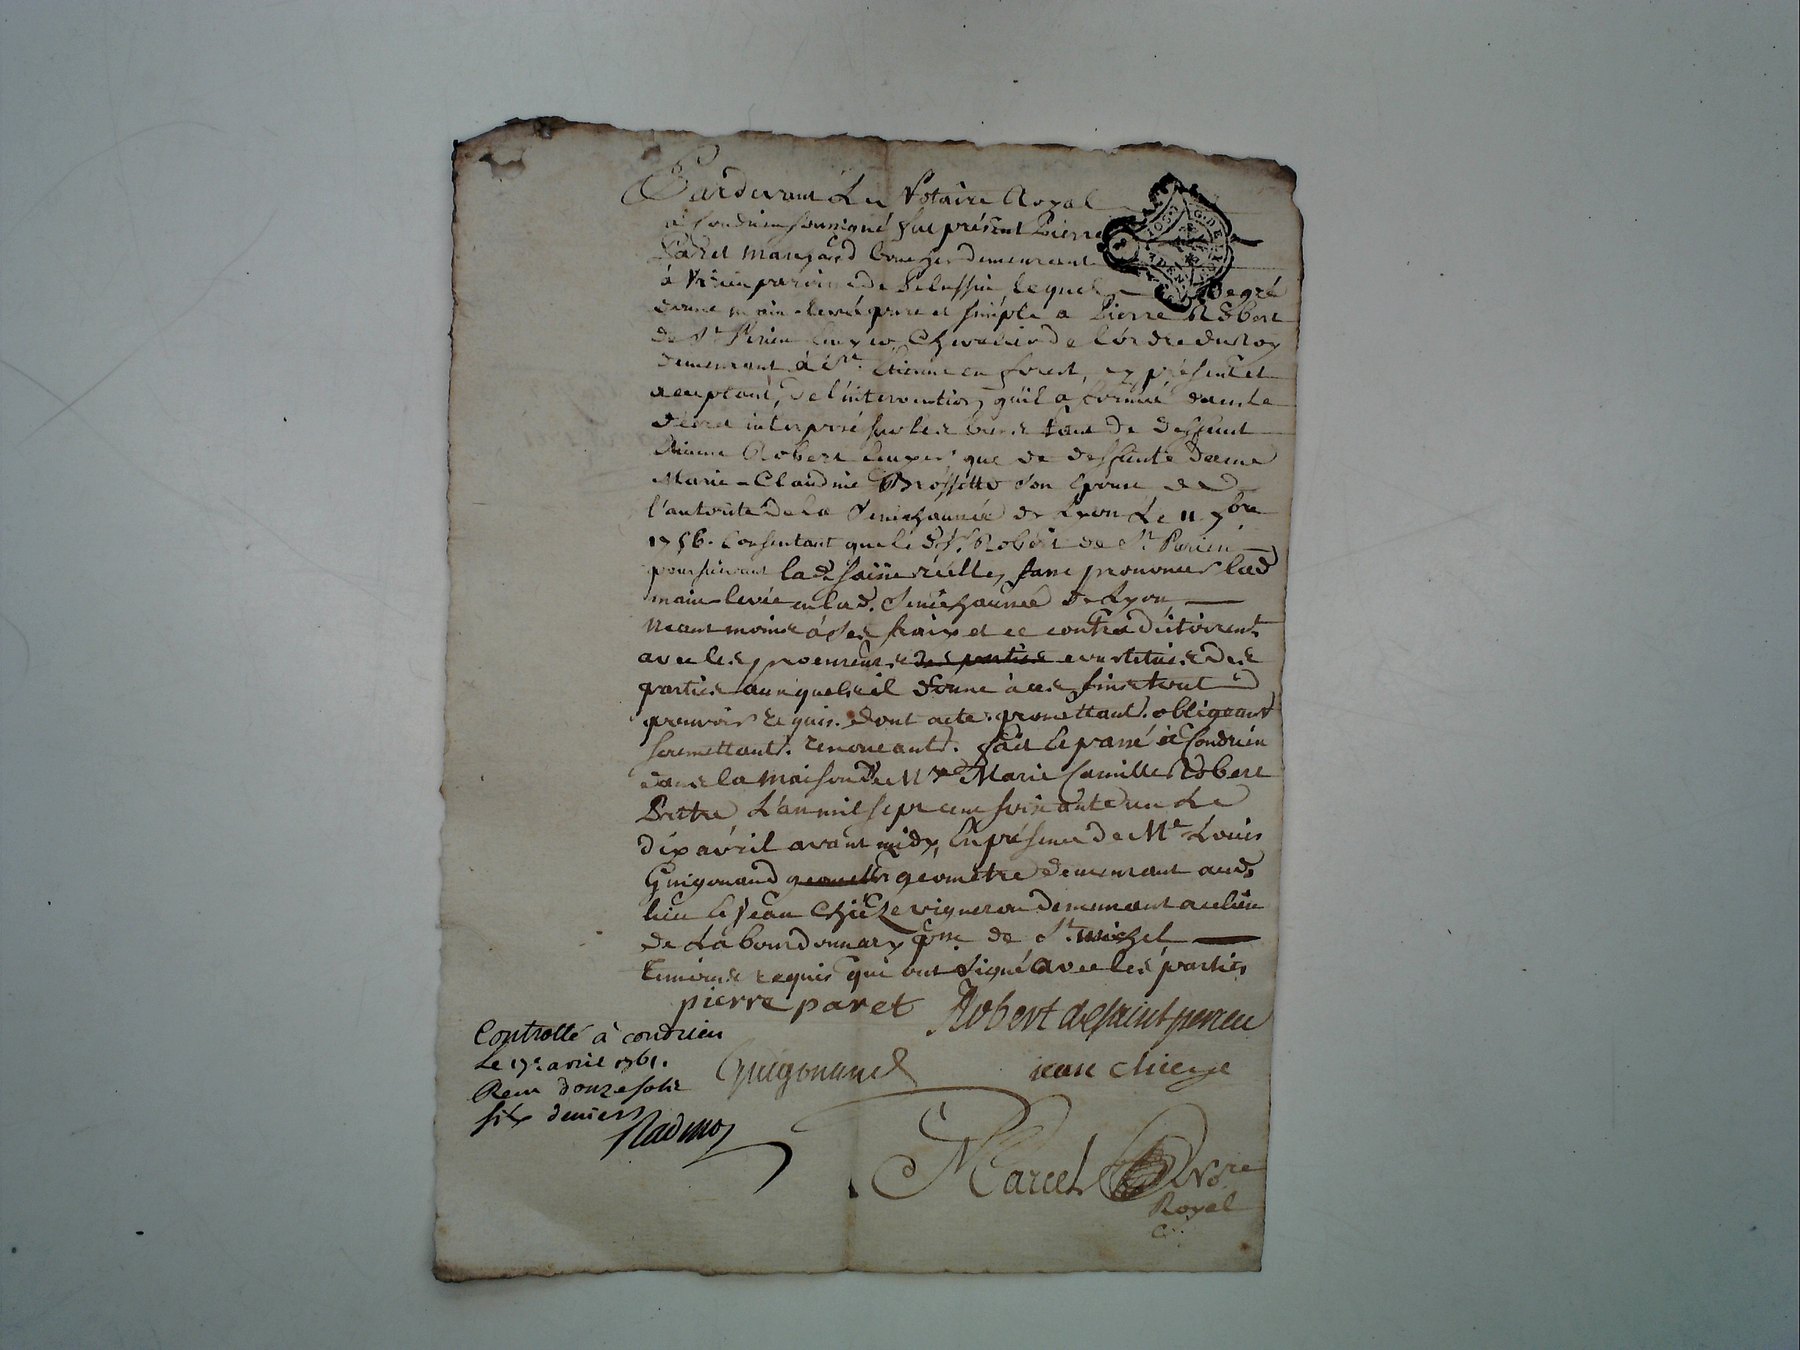 Pardevant Le Notaire Royal
à Condrieu soussigné fut présent Pierre
Paret marchand boucher demeurant
à Virieu paroisse de Pelussin lequel de gré
donne main-levée pure et simple a Pierre Robert
de St. Perieu Ecuyer Chevalier de l'ordre du Roy
demeurant à St. Etienne en forest, cy présent et
acceptant, de l'intervention qu'il a formée dans le
décret interposé sur les biens tant de deffunt
Robert Ecuyer que de deffunte dame
Marie-Claudine Brossette son Epouse de
l'autorité de la Senechaussée de Lyon Le 11 7bre
1756. Consentant que le dt. Sr. Robert de St. Perieu
poursuivant lad. saisie réelle, fasse prononcer lad
main-levée en lad. Senechaussée de Lyon
neant moins à ses fraix et ce contradictoiremt.
avec les procureurs des parties constitués des
parties auxquels il donne à ces fins tout
pouvoir requis. dont acte. promettant. obligeant
soumettant. renonçant. fait et passé à Condrieu
dans la maison de Mre Marie Camille Robert
Prêtre L'an mil sept cent soixante un Le
dix avril avant midy, En présence de Me. Louis
Guigonand geometre demeurant aud.
lieu et Jean Chieze vigneron demeurant au lieu
de La bourdonnary psse de St. michel
temoins requis qui ont signé avec les parties
pierre paret Robert de saint perieu
Controllé à condrieu
Le 17e. avril 1761.
Reçu douze sols
six deniers
Guigonand jean chieze
Marcel Nore
Royal